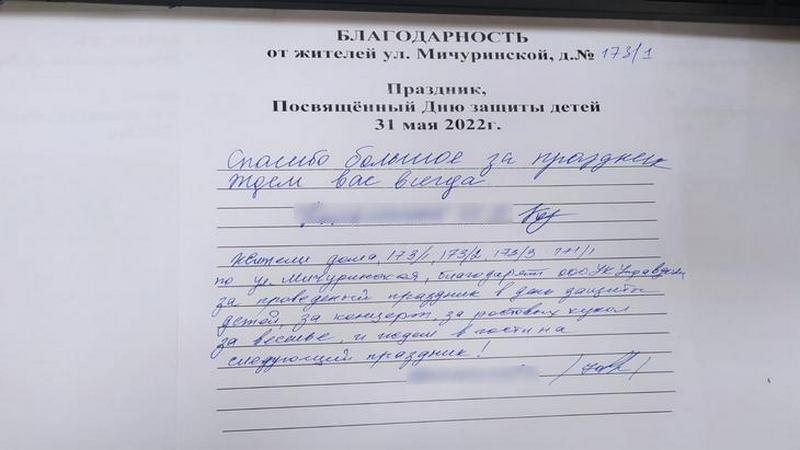 БЛАГОДАРНОСТЬ
от жителей ул. Мичуринской, д.№ 173/1
Праздник,
Посвящённый Дню защиты детей
31 мая 2022г.
Спасибо большое за праздник
Ждем вас всегда
Жители дома, 173/1, 173/2, 173/3 171/1
по ул. Мичуринская, благодарят ООО УК
за проведеный праздник в день защиты
детей, за концерт, за ростовых кукол
за веселье, и ждем в гости на
следующий праздник!